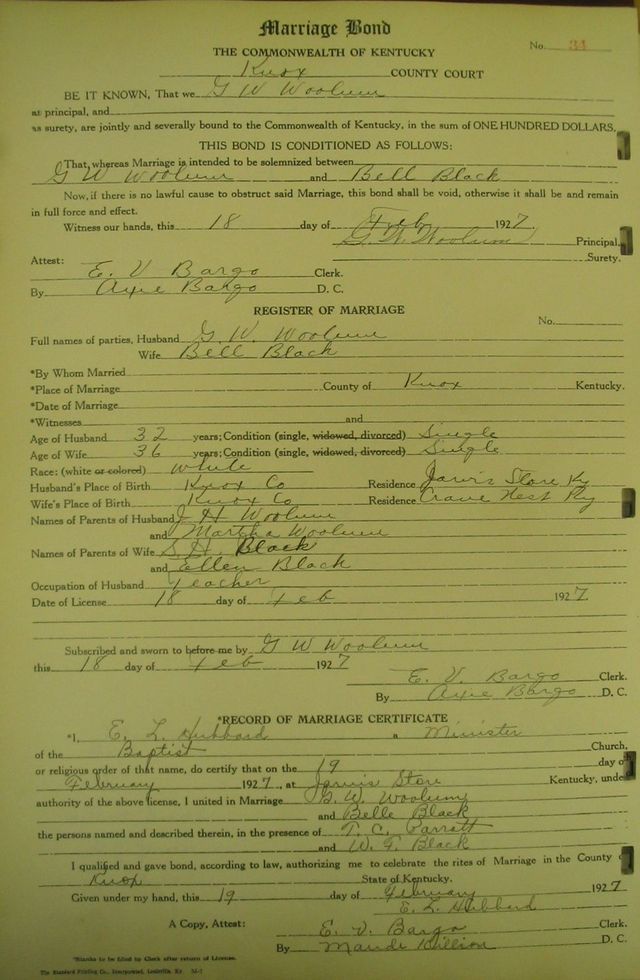 Marriage Bond
No. 34
THE COMMONWEALTH OF KENTUCKY
Knox COUNTY COURT
BE IT KNOWN, That we G W Woolum
as principal, and
as surety, are jointly and severally bound to the Commonwealth of Kentucky, in the sum of ONE HUNDRED DOLLARS.
THIS BOND IS CONDITIONED AS FOLLOWS:
That, whereas Marriage is intended to be solemnized between
G W Woolum and Bell Black
Now, if there is no lawful cause to obstruct said Marriage, this bond shall be void, otherwise it shall be and remain
in full force and effect.
Witness our hands, this 18 day of Feb 1927
G. W. Woolum Principal,
Surety.
Attest:
E. V Bargo Clerk.
By Bargo D. C.
REGISTER OF MARRIAGE
No.
Full names of parties, Husband G. W. Woolum
Wife Bell Black
*By Whom Married
*Place of Marriage County of Knox Kentucky.
*Date of Marriage
*Witnesses and
Age of Husband 32 years; Condition (single, widowed, divorced) Single
Age of Wife 36 years; Condition (single, widowed, divorced) Single
Race: (white or colored) White
Husband's Place of Birth Knox Co Residence Jarvis Store Ky
Wife's Place of Birth Knox Co Residence Crane Nest Ky
Names of Parents of Husband J H Woolum
and Martha Woolum
Names of Parents of Wife S. H. Black
and Ellen Black
Occupation of Husband Teacher
Date of License 18 day of Feb 1927
Subscribed and sworn to before me by G W Woolum
this 18 day of Feb 1927
E. V. Bargo Clerk.
By Bargo D. C.
*RECORD OF MARRIAGE CERTIFICATE
*I, E. L. Hubbard a Minister
of the Baptist Church,
or religious order of that name, do certify that on the 19 day of
February 1927, at Jarvis Store Kentucky, under
authority of the above license, I united in Marriage G. W. Woolum
and Belle Black
the persons named and described therein, in the presence of T. C. Parrott
and W. G. Black
I qualified and gave bond, according to law, authorizing me to celebrate the rites of Marriage in the County of
Knox State of Kentucky.
Given under my hand, this 19 day of February 1927
E. L. Hubbard
A Copy, Attest: E. V. Bargo Clerk.
By Maude Killion D. C.
*Blanks to be filled by Clerk after return of License.
The Standard Printing Co., Incorporated, Louisville, Ky